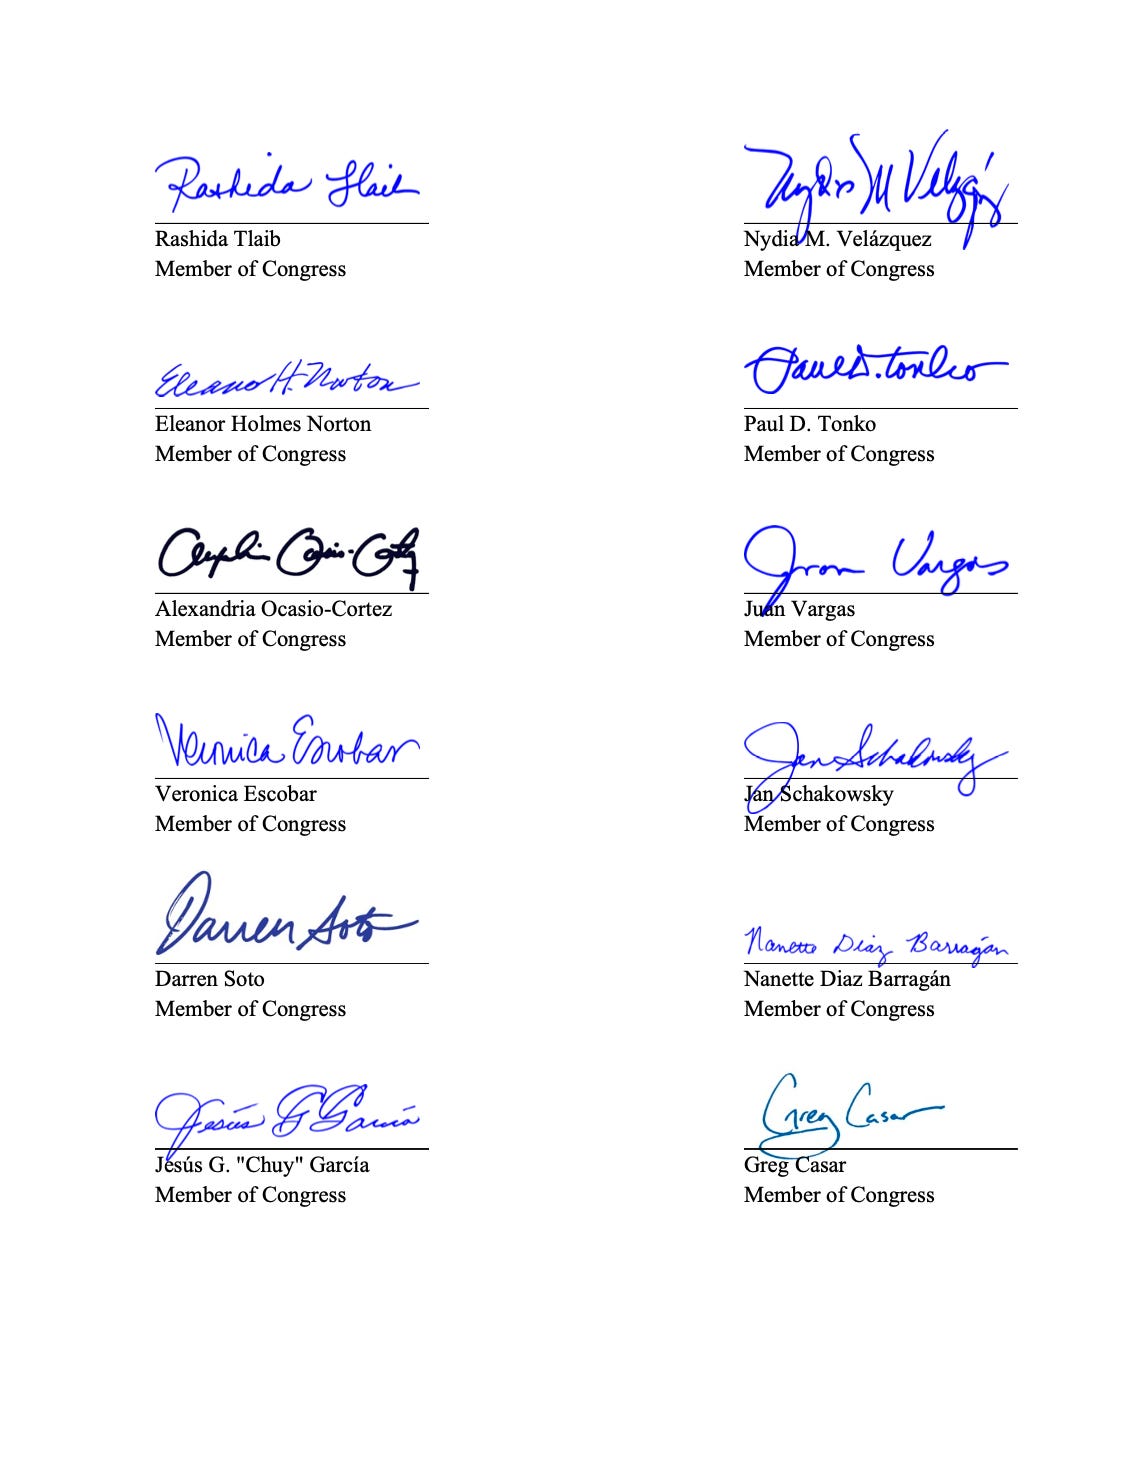 Rashida Tlaib
Rashida Tlaib
Member of Congress
Nydia M Velázquez
Nydia M. Velázquez
Member of Congress
Eleanor H. Norton
Eleanor Holmes Norton
Member of Congress
Paul D. Tonko
Paul D. Tonko
Member of Congress
Alexandria Ocasio-Cortez
Member of Congress
Juan Vargas
Juan Vargas
Member of Congress
Veronica Escobar
Veronica Escobar
Member of Congress
Jan Schakowsky
Jan Schakowsky
Member of Congress
Darren Soto
Darren Soto
Member of Congress
Nanette Diaz Barragán
Nanette Diaz Barragán
Member of Congress
Jesús G García
Jesús G. "Chuy" García
Member of Congress
Greg Casar
Greg Casar
Member of Congress